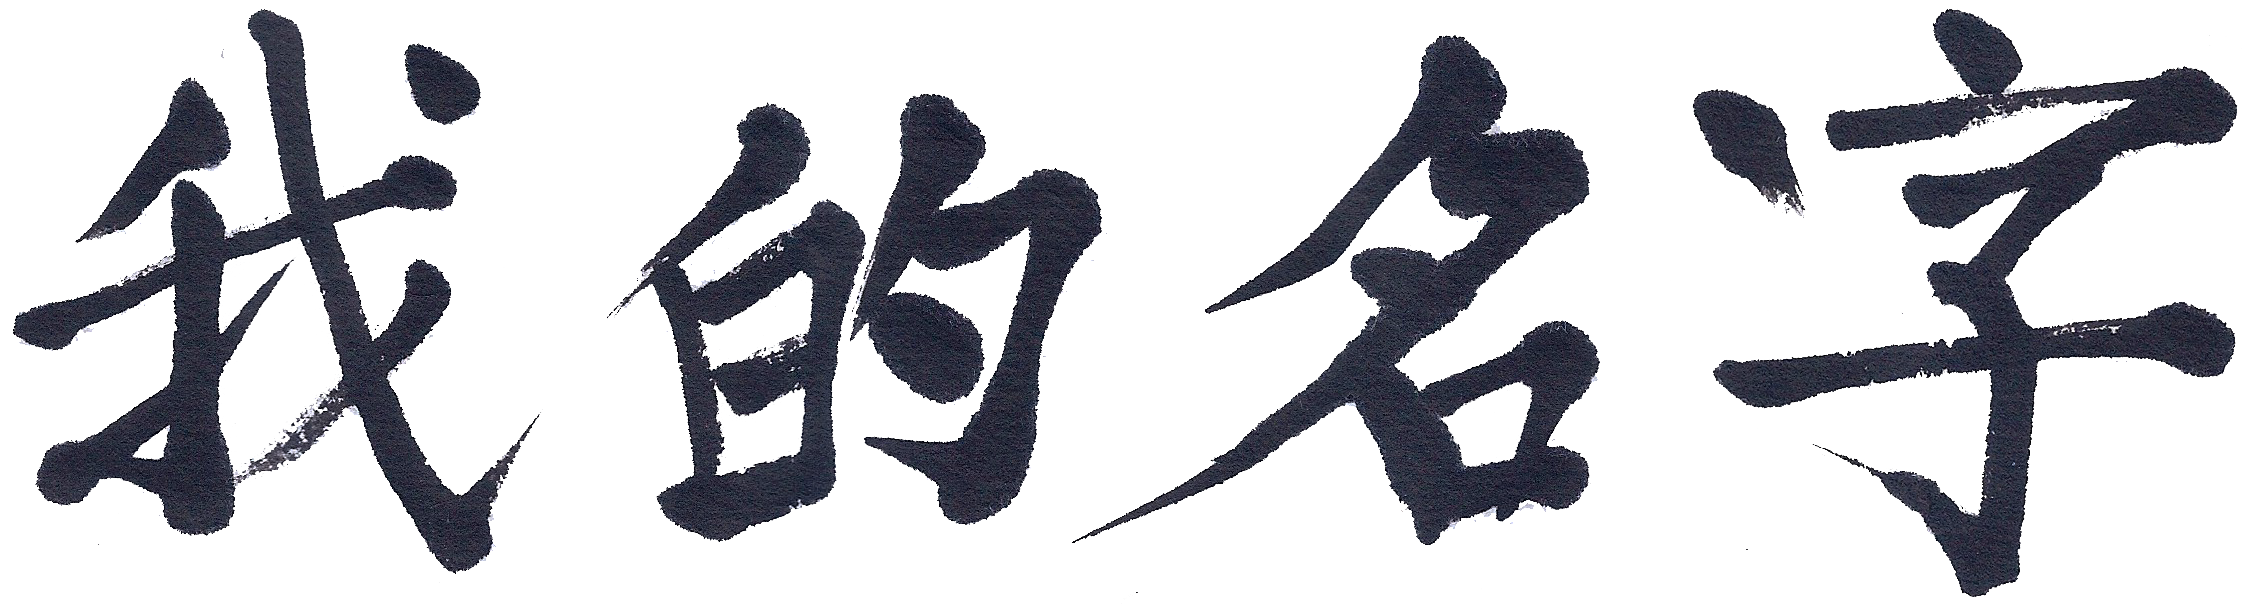 我的名字